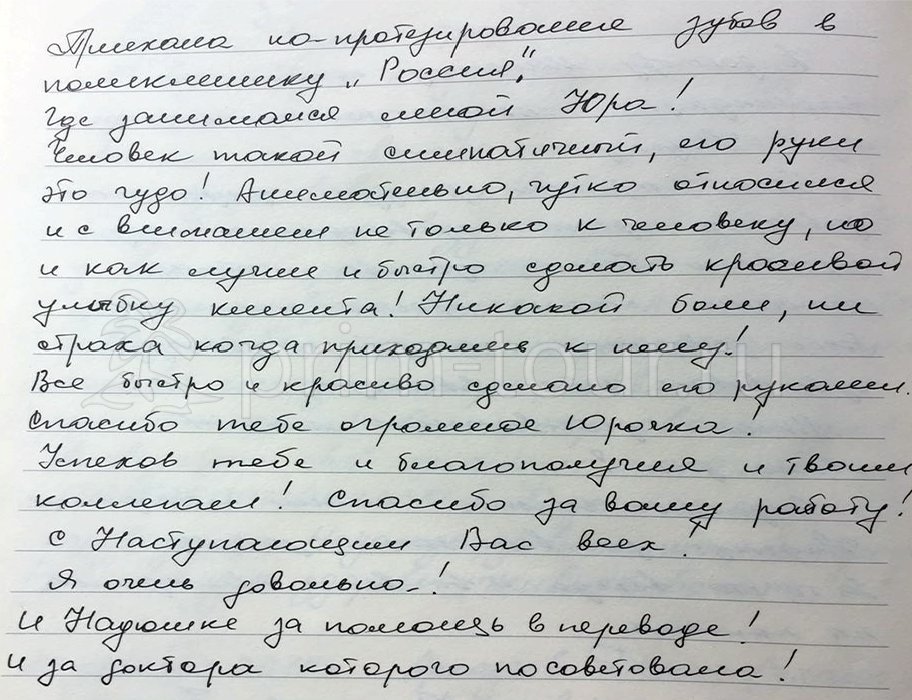 Приехала на протезирование зубов в
поликлинику „Россия",
где занимался мной Юра!
Человек такой симпатичный, его руки
это чудо! Внимательно, чутко относился
и с вниманием не только к человеку, но
и как лучше и быстро сделать красивой
улыбку клиента! Никакой боли, ни
страха когда приходишь к нему!
Все быстро и красиво сделано его руками.
Спасибо тебе огромное Юрочка!
Успехов тебе и благополучия и твоим
коллегам! Спасибо за вашу работу!
С Наступающим Вас всех!
Я очень довольна!
И Надюшке за помощь в переводе!
И за доктора которого посоветовала!
prim-tour.ru